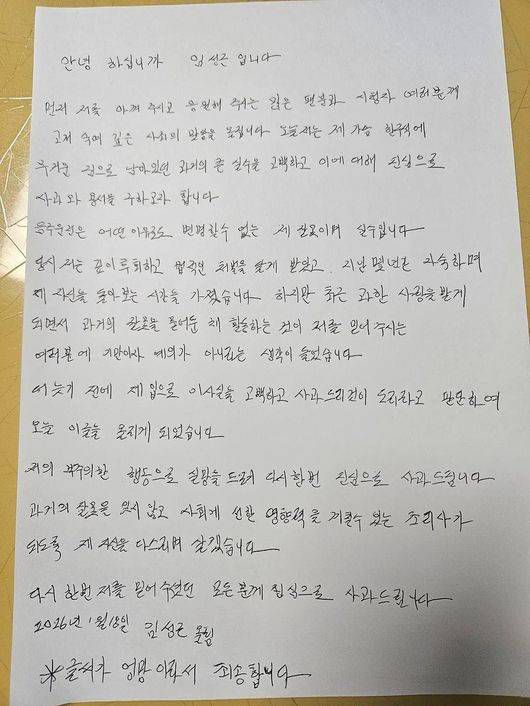 안녕 하십니까 임성근 입니다
먼저 저를 아껴 주시고 응원해 주시는 많은 팬분과 시청자 여러분께
고개 숙여 깊은 사죄의 말씀을 올립니다 오늘 저는 제 가슴 한구석에
무거운 짐으로 남아있던 과거의 큰 실수를 고백하고 이에 대해 진심으로
사과와 용서를 구하고자 합니다
음주운전은 어떤 이유로도 변명할수 없는 제 잘못이며 실수입니다
당시 저는 깊이 뉘우치고 법적인 처벌을 달게 받았고, 지난 몇년간 자숙하며
제 자신을 돌아 보는 시간을 가졌습니다 하지만 최근 과한 사랑을 받게
되면서 과거의 잘못을 묻어둔 채 활동하는 것이 저를 믿어 주시는
여러분에 기만이자 예의가 아니라는 생각이 들었습니다
더 늦기 전에 제 입으로 이사실을 고백하고 사과드리것이 도리라고 판단하여
오늘 이글을 올리게 되었습니다
저의 부주의한 행동으로 실망을 드려 다시한번 진심으로 사과드립니다
과거의 잘못을 잊지 않고 사회에 선한 영향력을 끼칠수 있는 조리사가
되도록 제 자신을 다스리며 살겠습니다
다시 한번 저를 믿어 주셨던 모든분께 진심으로 사과드립니다
2026년 1월 18일 임성근 올림
※글씨가 엉망이라서 죄송합니다